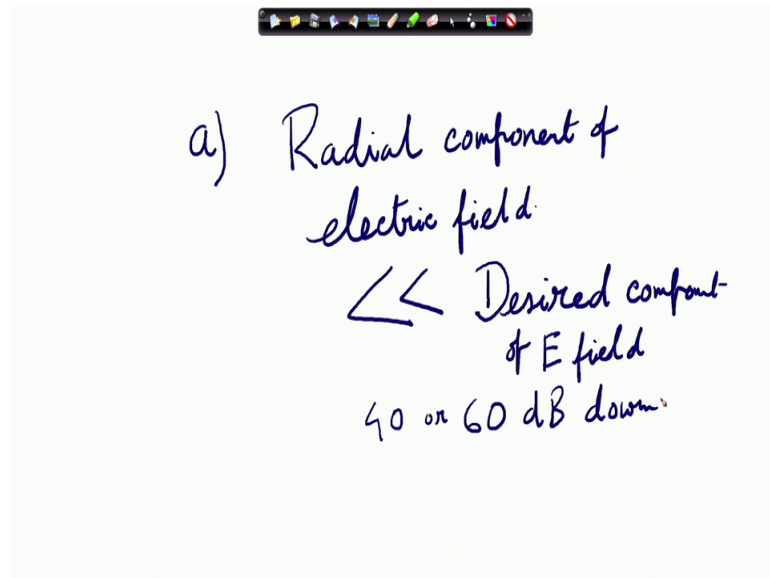 a) Radial component of
electric field.
<< Desired component
of E field
40 or 60 dB down.